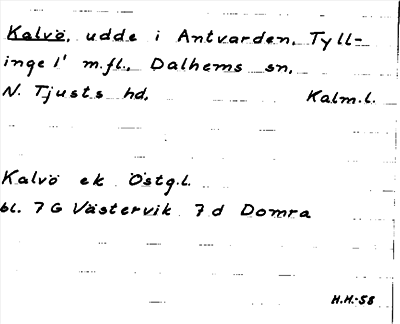 Kalvö, udde i Antvarden, Tyll-
inge 1' m.fl., Dalhems sn,
N. Tjusts hd, Kalm.l.
Kalvö ek Östg.l.
bl. 7 G Västervik 7 d Domra
H.H.-58